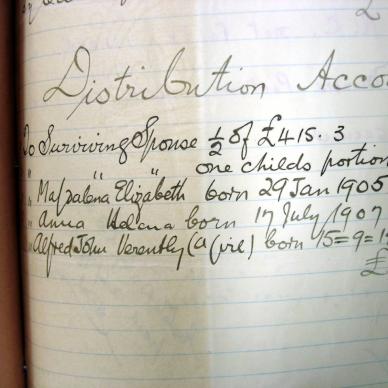 £
Distribution Acco
To Surviving Spouse ½ of £415.3
" " " one childs portion
" Magdalena Elizabeth born 29 Jan 1905
" Anna Helena born 17 July 1907
" Alfred John born 15=9=1
£